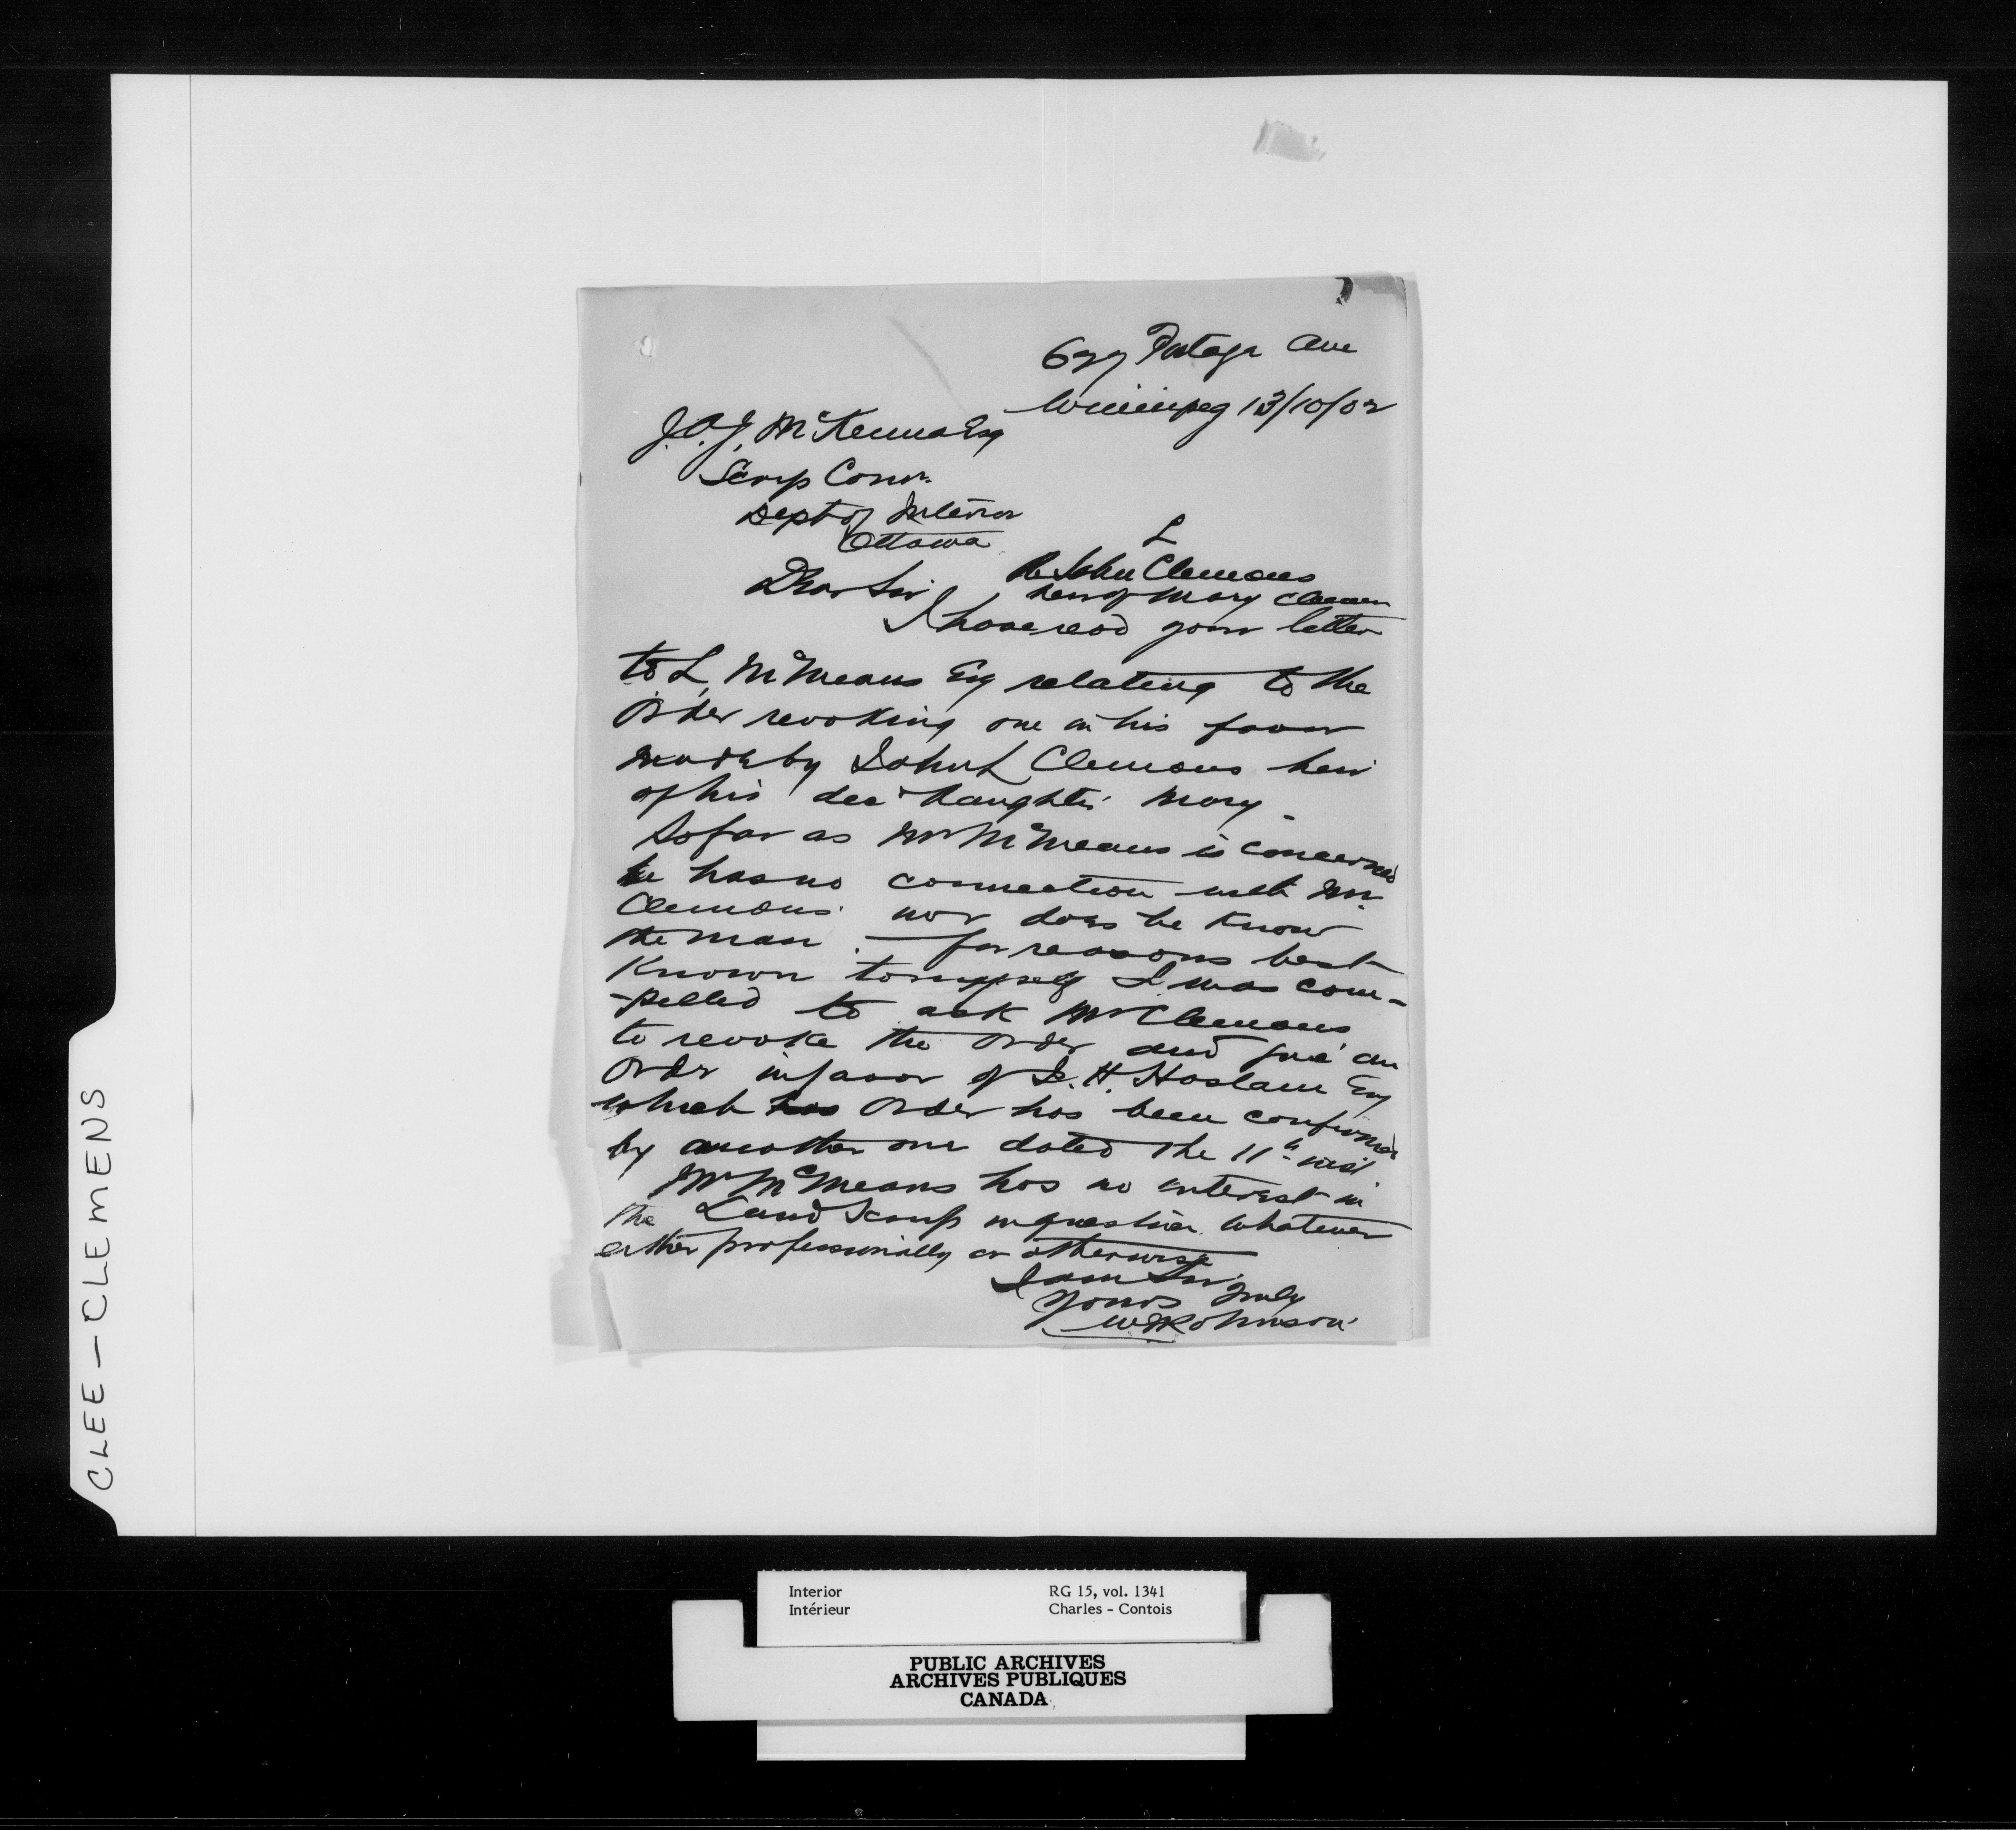 Portage Ave
Winnipeg 13/10/02
J.A.J. McKenna Esq
Scrip Comr.
Dept of Interior
Ottawa
L
Re John Clemons
heir of Mary Clemons
Dear Sir
I have read your letter
to L. McMeans Esq relating to the
Order revoking one in his favor
made by John L Clemons heir
of his decd daughter Mary
So far as Mr McMeans is concerned
he has no connection with Mr.
Clemons nor does he know
the man. — for reasons best
known to myself I was com-
-pelled to ask Mr Clemons
to revoke the order and give an
Order in favor of J. H. Haslam Esq
which has Order has been confirmed
by another one dated the 11th inst
Mr McMeans has no interest in
the Land Scrip in question whatever
either professionally or otherwise
I am Sir
Yours truly
Johnson
CLEE - CLEMENS
Interior RG 15, vol. 1341
Intérieur Charles - Contois
PUBLIC ARCHIVES
ARCHIVES PUBLIQUES
CANADA